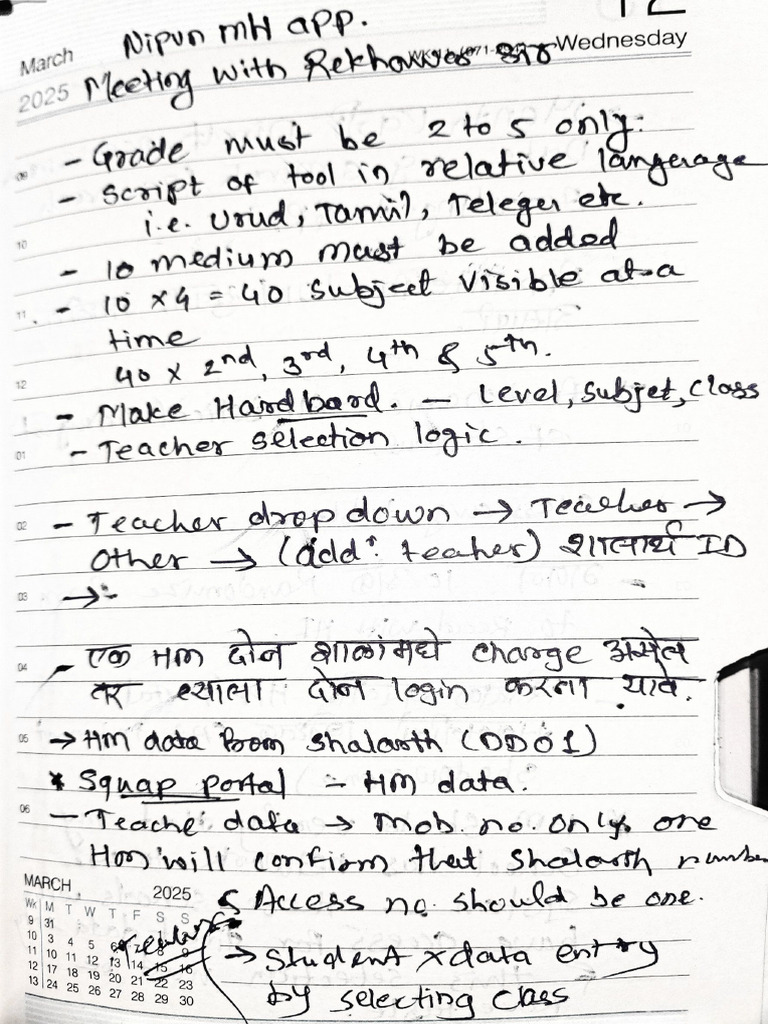 12
March
Nipun mH app.
Wednesday
2025 Meeting with Rekhawar सर
- Grade must be 2 to 5 only.
- Script of tool in relative langerage
i.e. Urud, Tamil, Teleger etc.
- 10 medium must be added
- 10 x 4 = 40 Subject visible at a
time
40 x 2nd, 3rd, 4th & 5th.
- Make Hardbard. - Level, Subjet, Class
- Teacher selection logic.
- Teacher drop down → Teacher →
Other → (add: teaher) शालार्थ ID
→
- एक HM दोन शाळांमधे charge असेल
तर त्याला दोन login करता यावे.
→ HM data from Shalarth (DDO1)
* Squap portal - HM data.
- Teache data → Mob. no. only one
HM will confirm that Shalarth number
& Access no. should be one.
→ Student x data entry
by selecting class
MARCH 2025
Wk M T W T F S S
9 31
10 3 4 5 6 7 8 9
11 10 11 12 13 14 15 16
12 17 18 19 20 21 22 23
13 24 25 26 27 28 29 30